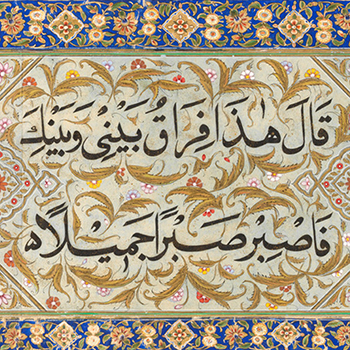 قَالَ هٰذَا فِرَاقُ بَيْنِى وَبَيْنِكَ
فَاصْبِرْ صَبْرًا جَمِيْلًا ه